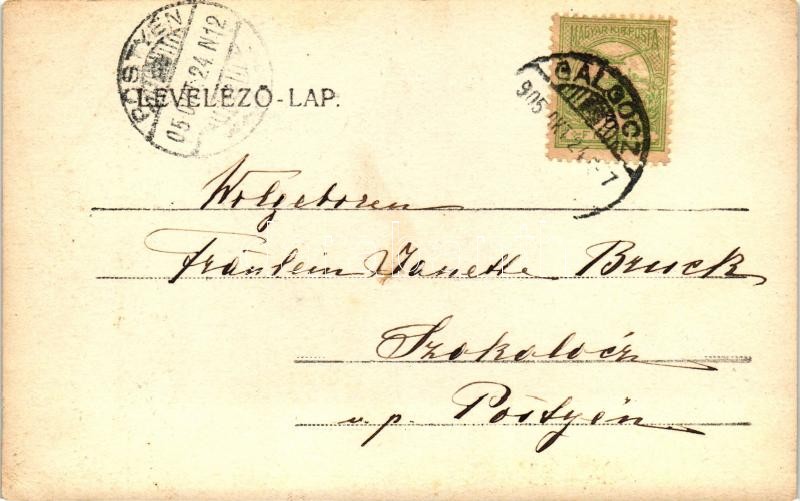 PÖSTYÉN
05 OKT 24 N12
MAGYAR KIR. POSTA
GALGÓCZ
905 OKT 24
LEVELEZŐ-LAP.
Wolgeboren
Fräulein Janette Bruck
Szokolócz
u. p. Pöstyén